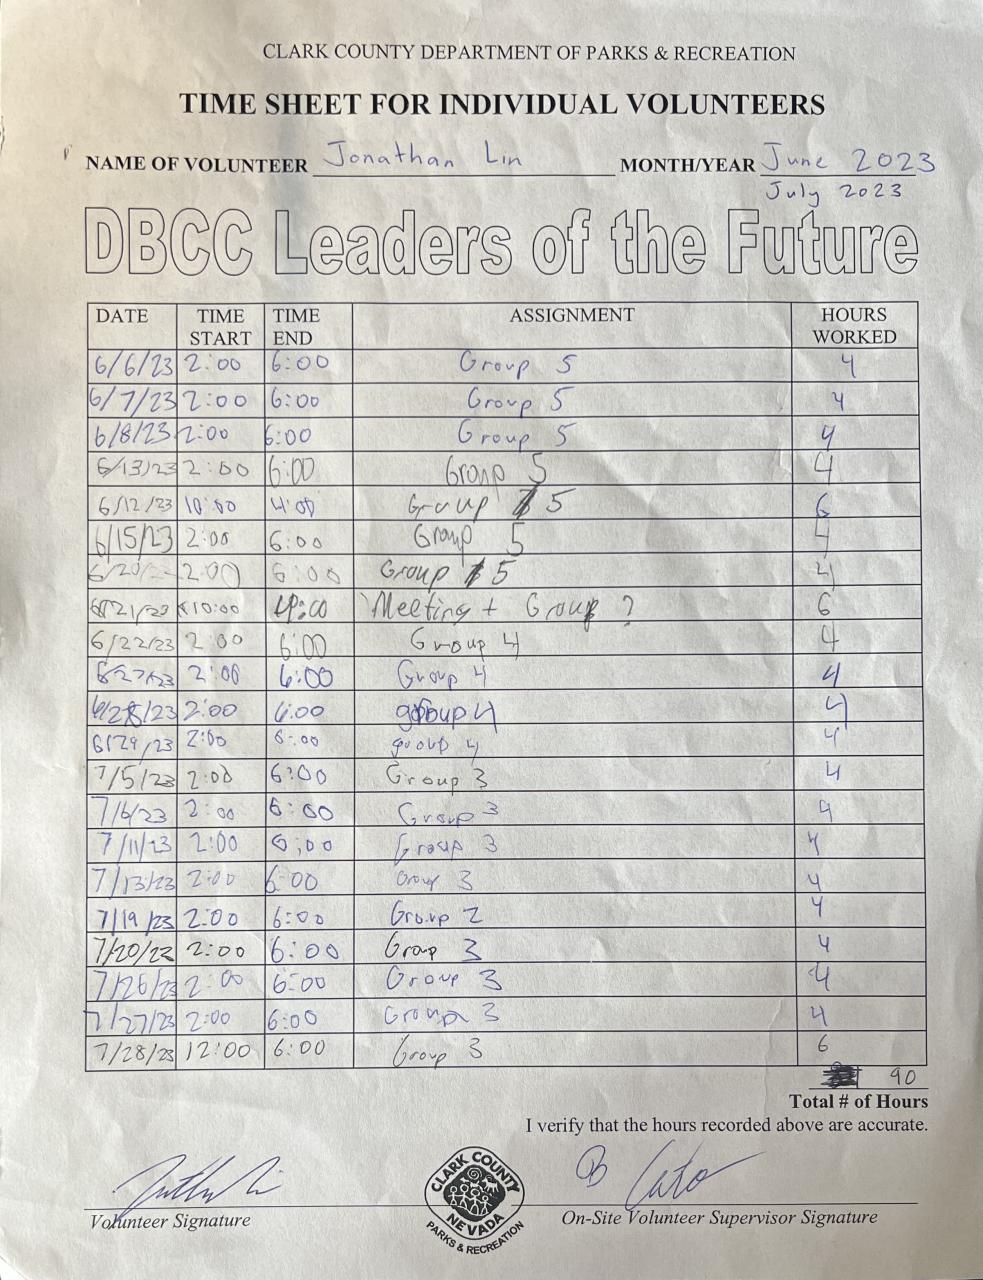 CLARK COUNTY DEPARTMENT OF PARKS & RECREATION
TIME SHEET FOR INDIVIDUAL VOLUNTEERS
NAME OF VOLUNTEER Jonathan Lin MONTH/YEAR June 2023
July 2023
DBCC Leaders of the Future
DATE TIME START TIME END ASSIGNMENT HOURS WORKED
6/6/23 2:00 6:00 Group 5 4
6/7/23 2:00 6:00 Group 5 4
6/8/23 2:00 6:00 Group 5 4
6/13/23 2:00 6:00 Group 5 4
6/12/23 10:00 4:00 Group 5 6
6/15/23 2:00 6:00 Group 5 4
6/20/ 2:00 6:00 Group 5 4
6/21/23 10:00 4:00 Meeting + Group ? 6
6/22/23 2:00 6:00 Group 4 4
6/27/23 2:00 6:00 Group 4 4
6/28/23 2:00 6:00 group 4 4
6/29/23 2:00 6:00 group 4 4
7/5/23 2:00 6:00 Group 3 4
7/6/23 2:00 6:00 Group 3 4
7/11/23 2:00 6:00 Group 3 4
7/13/23 2:00 6:00 Group 3 4
7/19/23 2:00 6:00 Group 2 4
7/20/23 2:00 6:00 Group 3 4
7/26/23 2:00 6:00 Group 3 4
7/27/23 2:00 6:00 Group 3 4
7/28/23 12:00 6:00 Group 3 6
90
Total # of Hours
I verify that the hours recorded above are accurate.
B Cato
Volunteer Signature On-Site Volunteer Supervisor Signature
CLARK COUNTY
NEVADA
PARKS & RECREATION